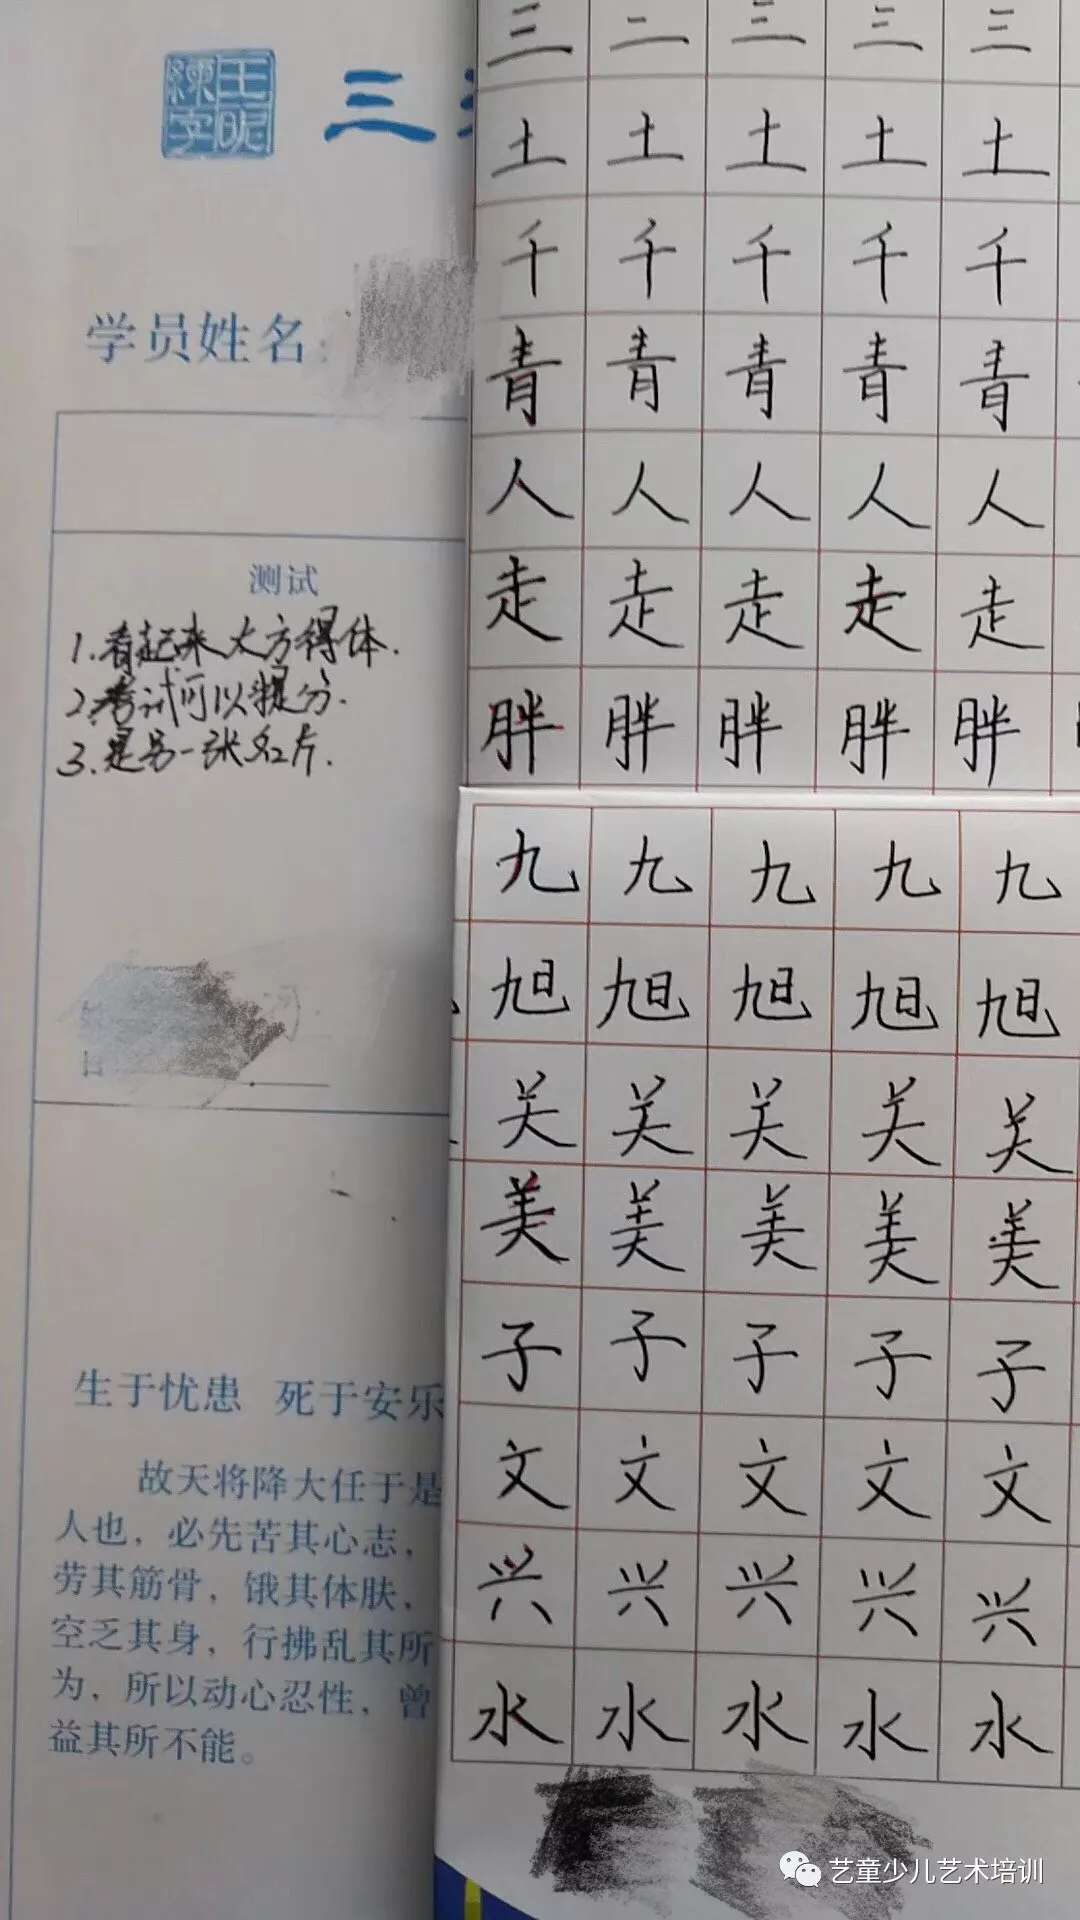 王昵
練字
三
学员姓名：
测试
1.看起来大方得体.
2.考试可以提分.
3.是另一张名片.
生于忧患 死于安乐
故天将降大任于是
人也，必先苦其心志，
劳其筋骨，饿其体肤，
空乏其身，行拂乱其所
为，所以动心忍性，曾
益其所不能。
三 二 三 三 三
土 土 土 土 土
千 千 千 千 千
青 青 青 青 青
人 人 人 人 人
走 走 走 走 走
胖 胖 胖 胖 胖
九 九 九 九 九
旭 旭 旭 旭 旭
关 关 关 关 关
美 美 美 美 美
子 子 子 子 子
文 文 文 文 文
兴 兴 兴 兴 兴
水 水 水 水 水
艺童少儿艺术培训